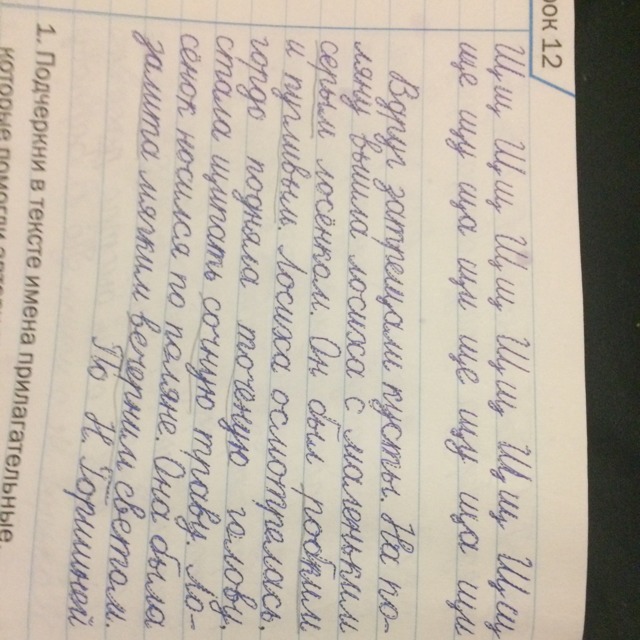 рок 12
Щщ Щщ Щщ Щщ Щщ Щщ
ще щу ща щи ще щу ща щи
Вдруг затрещали кусты. На по-
ляну вышла лосиха с маленьким
серым лосёнком. Он был робким
и пугливым. Лосиха осмотрелась.
гордо подняла точеную голову,
стала щипать сочную траву. Ло-
сёнок носился по поляне. Она была
залита мягким вечерним светом.
По Н.
1. Подчеркни в тексте имена прилагательные,
которые помогли